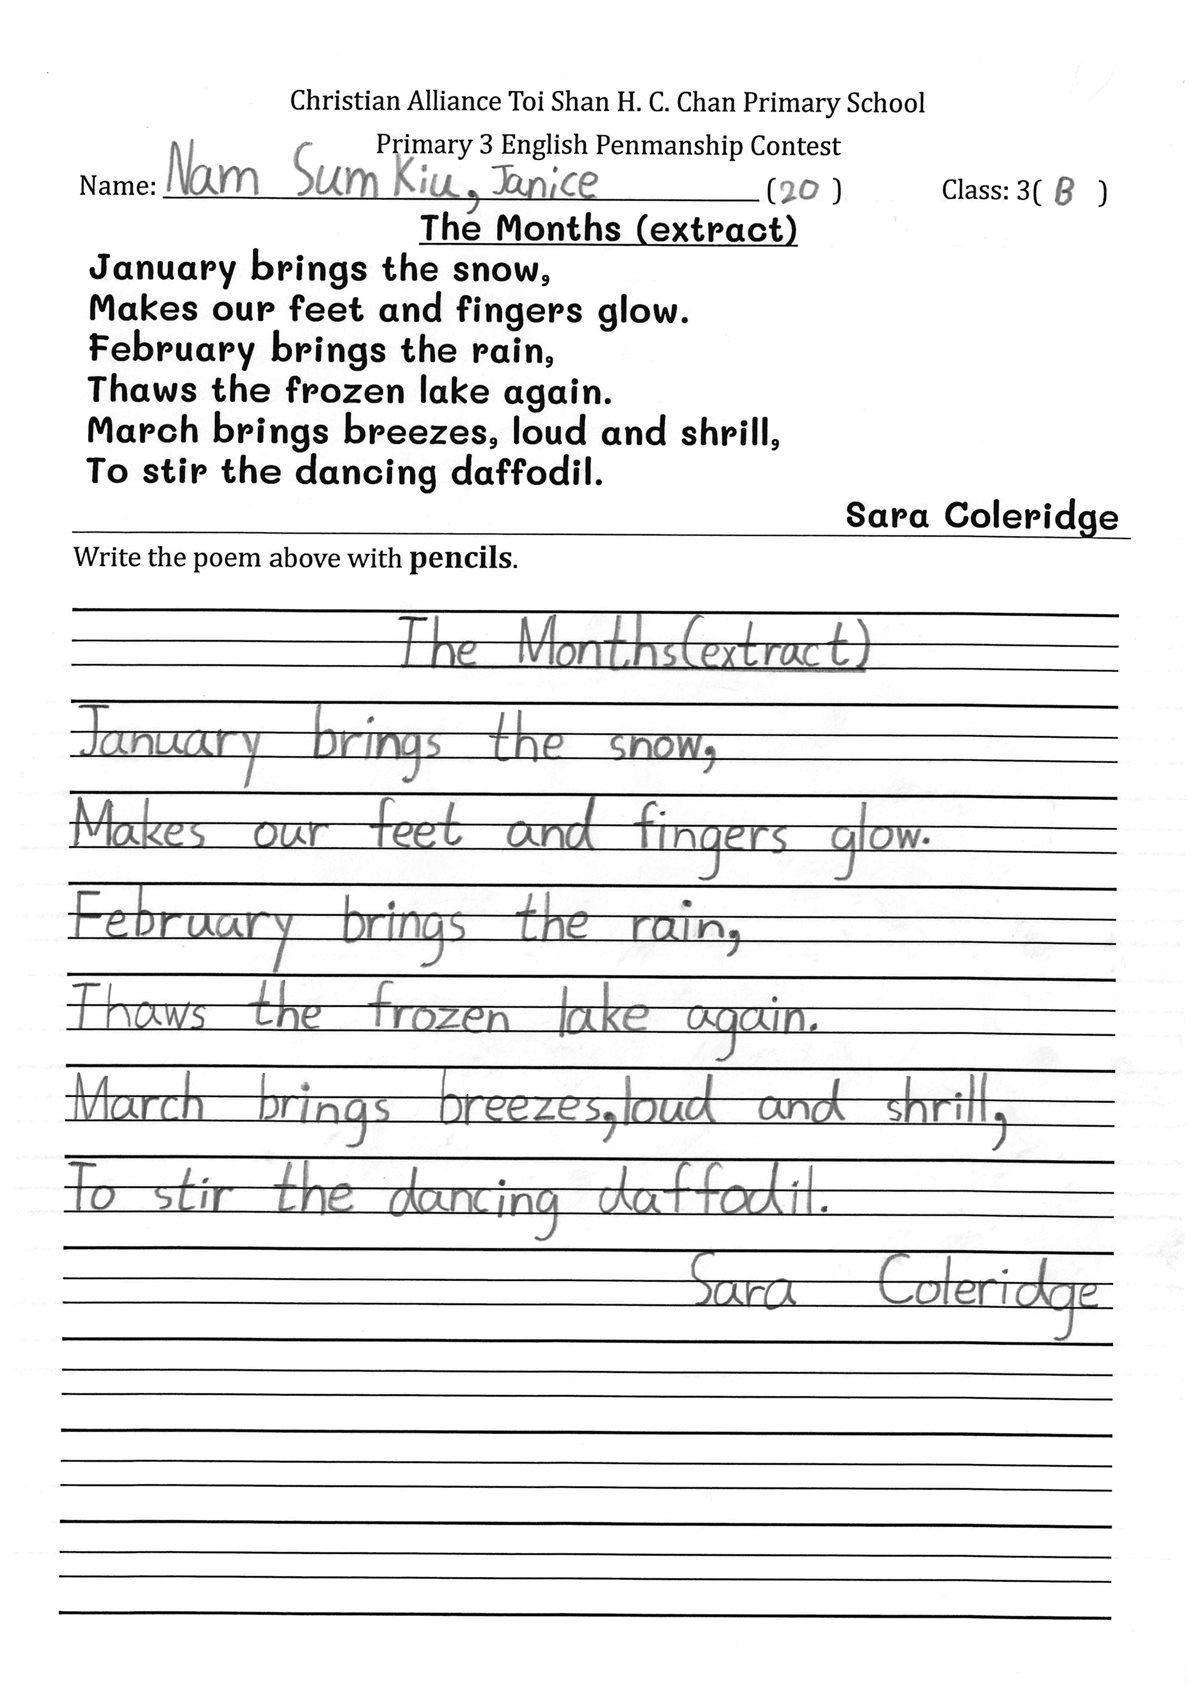 Christian Alliance Toi Shan H. C. Chan Primary School
Primary 3 English Penmanship Contest
Name: Nam Sum Kiu, Janice (20) Class: 3( B )
The Months (extract)
January brings the snow,
Makes our feet and fingers glow.
February brings the rain,
Thaws the frozen lake again.
March brings breezes, loud and shrill,
To stir the dancing daffodil.
Sara Coleridge
Write the poem above with pencils.
The Months(extract)
January brings the snow,
Makes our feet and fingers glow.
February brings the rain,
Thaws the frozen lake again.
March brings breezes,loud and shrill,
To stir the dancing daffodil.
Sara Coleridge